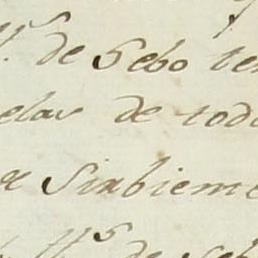 de Sebo te
elas de tod
Sirbieme
de Seb